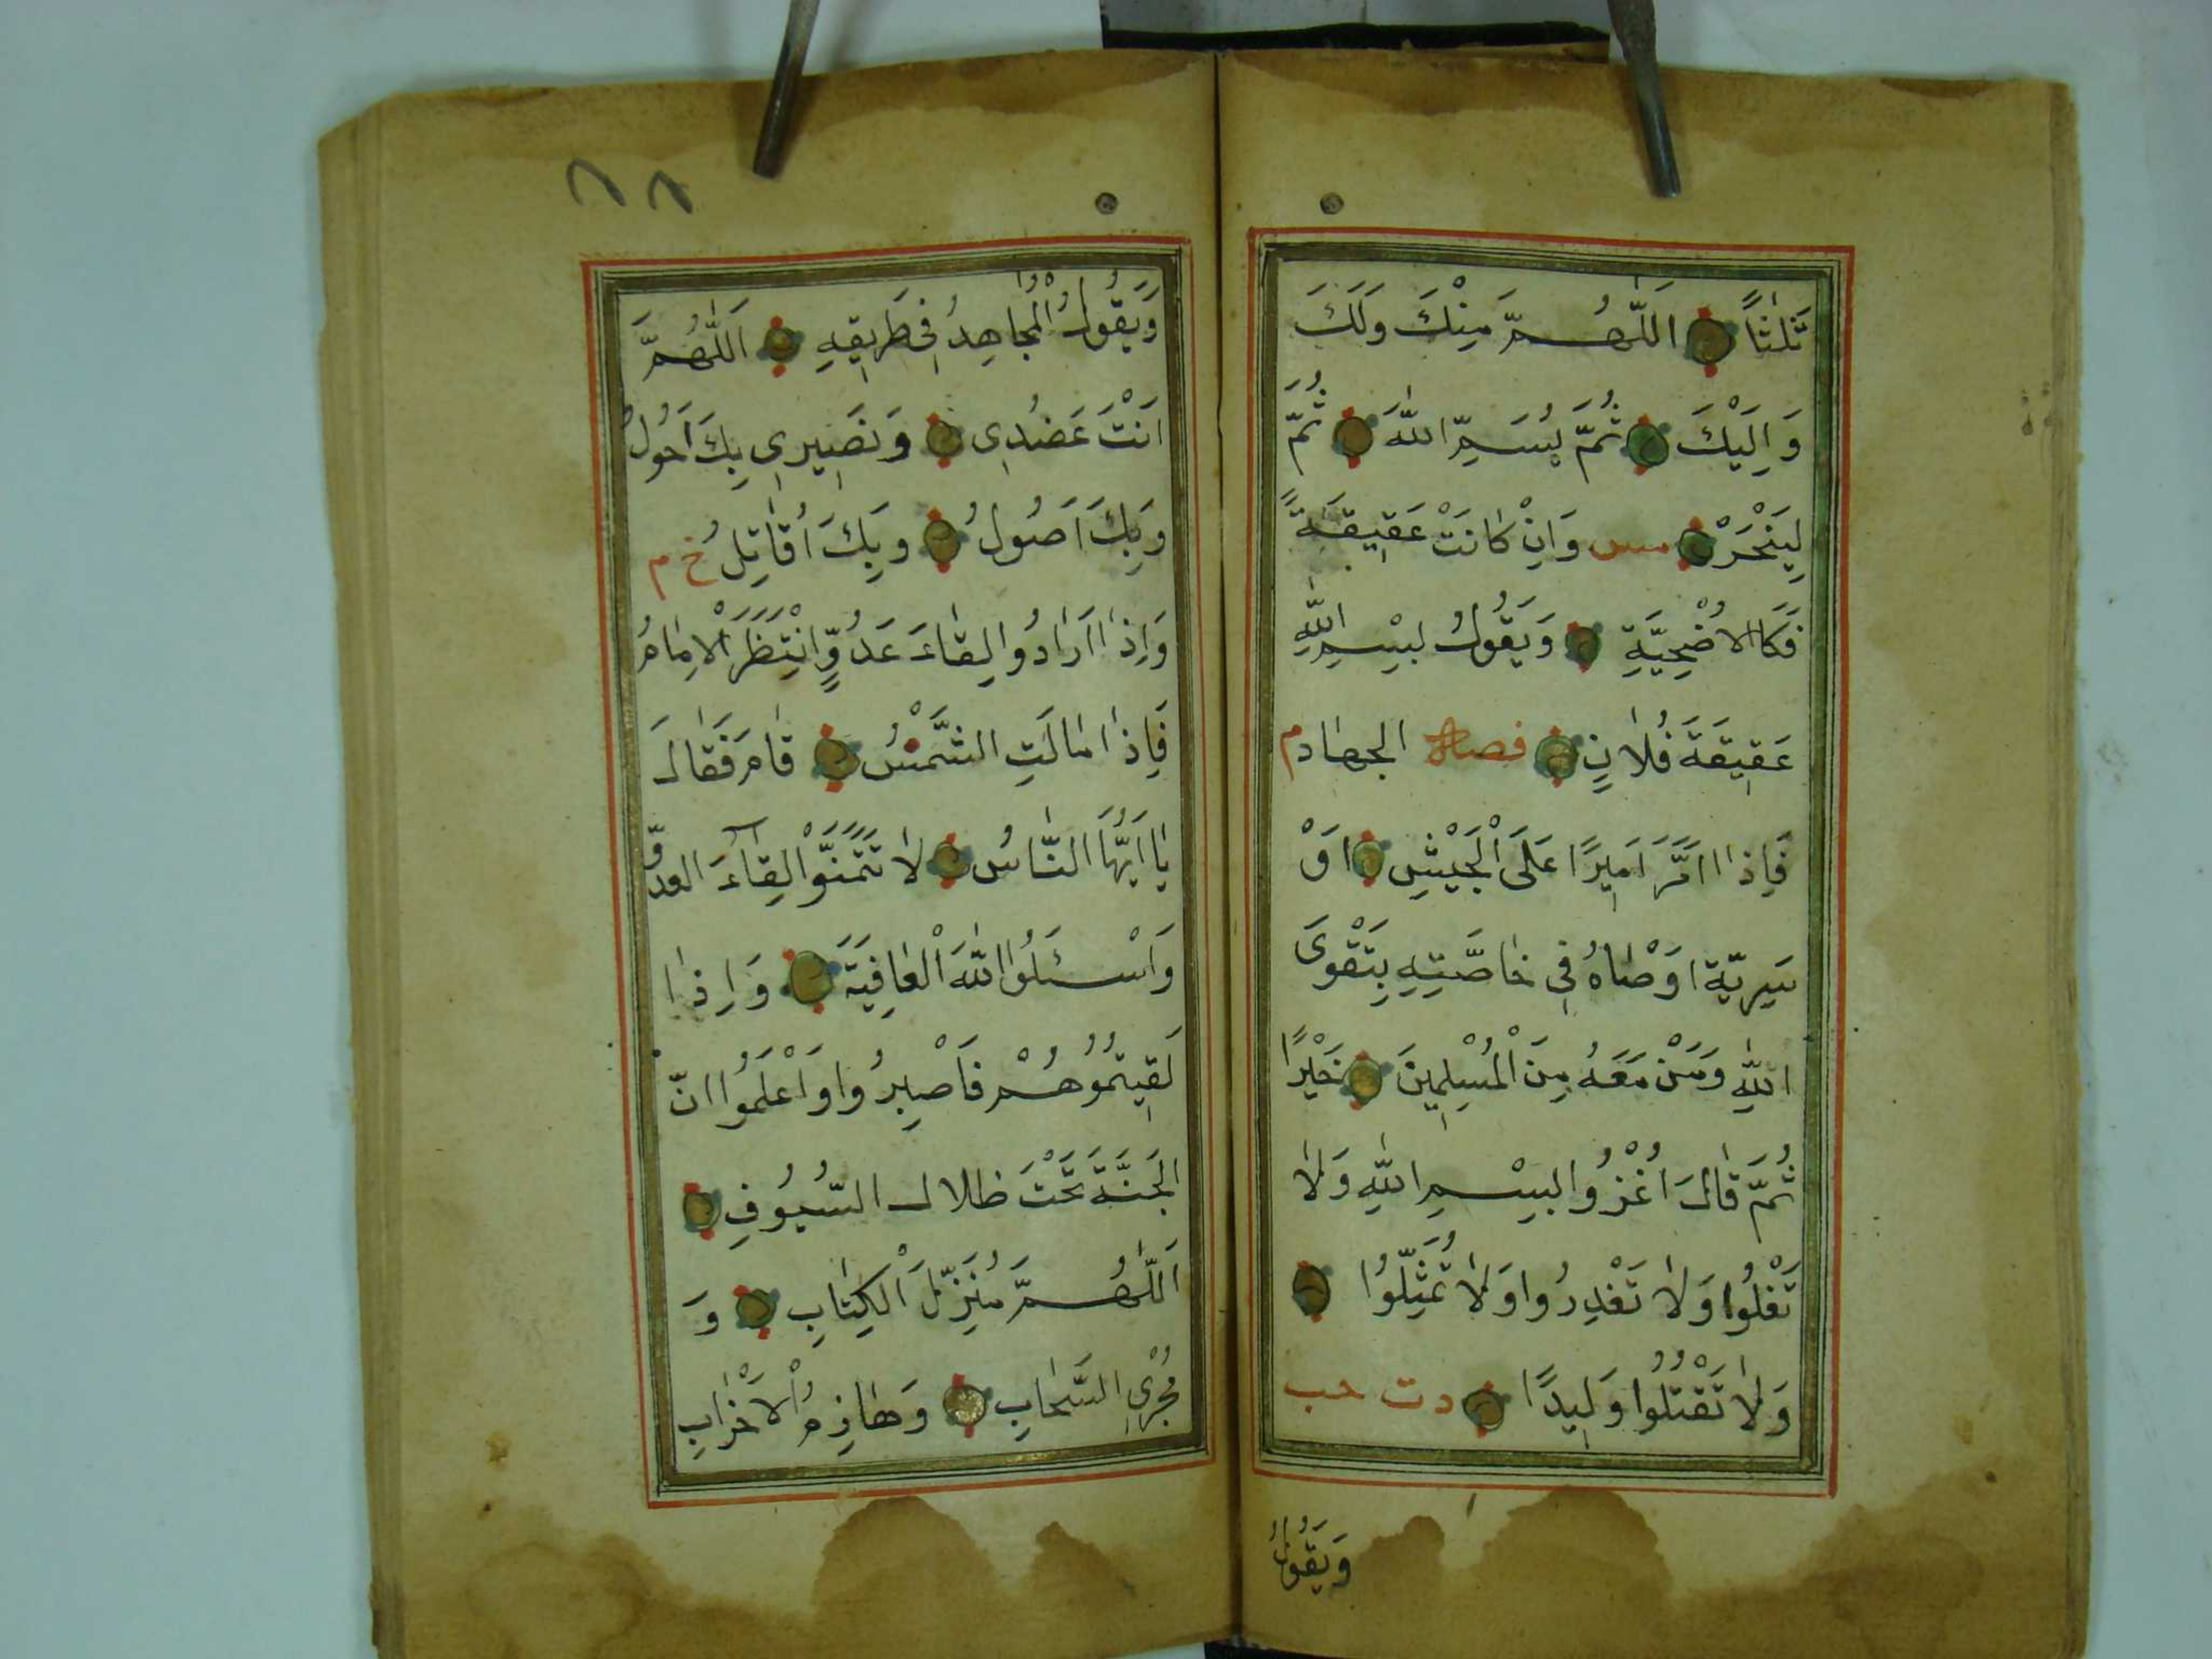 ثَلٰثًا اَللّٰهُمَّ مِنْكَ وَلَكَ
وَاِلَيْكَ ثُمَّ يُسَمِّ اللّٰهَ ثُمَّ
لِيَنْحَرْ مس وَاِنْ كَانَتْ عَقِيقَةً
فَكَالاُضْحِيَّةِ وَيَقُولُ بِسْمِ اللّٰهِ
عَقِيقَةَ فُلَانٍ فصل الجهاد م
فَاِذَا اَمَّرَ اَمِيرًا عَلَى الْجَيْشِ اَوْ
سَرِيَّة اَوْصَاهُ فِى خَاصَّتِهِ بِتَقْوَى
اللّٰهِ وَمَنْ مَعَهُ مِنَ الْمُسْلِمِينَ خَيْرًا
ثُمَّ قَالَ اُغْزُوا بِسْمِ اللّٰهِ وَلَا
تَغْلُوا وَلَا تَغْدِرُوا وَلَا تُمَثِّلُوا
وَلَا تَقْتُلُوا وَلِيدًا د ت حب
وَيَقُولُ
٨٨
وَيَقُولُ الْمُجَاهِدُ فِى طَرِيقِهِ اَللّٰهُمَّ
اَنْتَ عَضُدِى وَنَصِيرِى بِكَ اَحُولُ
وَبِكَ اَصُولُ وَبِكَ اُقَاتِلُ خ م
وَاِذَا اَرَادُوا لِقَاءَ عَدُوٍّ انْتَظَرَ الْاِمَامُ
فَاِذَا مَالَتِ الشَّمْسُ قَامَ فَقَالَ
يَا اَيُّهَا النَّاسُ لَا تَتَمَنَّوْا لِقَآءَ العدوّ
وَاسْـئَلُوا اللّٰهَ الْعَافِيَةَ وَاِذَا
لَقِيتُمُوهُمْ فَاصْبِرُوا وَاعْلَمُوا انّ
الجَنَّةَ تَحْتَ ظلال السُّيُوفِ
اَللّٰهُمَّ مُنَزِّلَ الْكِتَابِ وَ
مُجْرِىَ السَّحَابِ وَهَازِمَ الْاَحْزَابِ